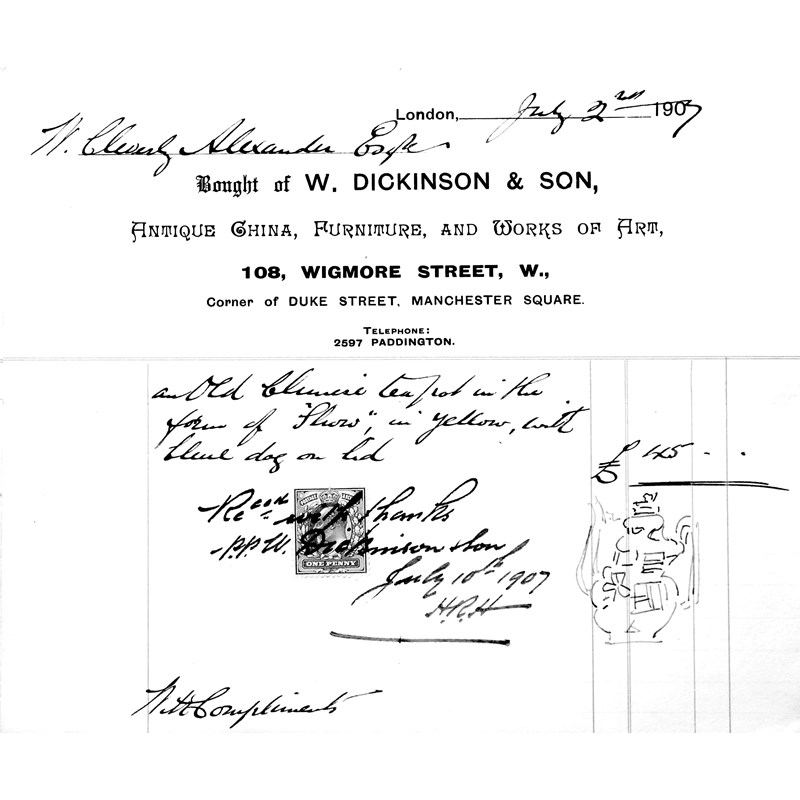 London, July 2nd 1907
W. Cleverly Alexander Esqre
Bought of W. DICKINSON & SON,
ANTIQUE CHINA, FURNITURE, AND WORKS OF ART,
108, WIGMORE STREET, W.,
Corner of DUKE STREET, MANCHESTER SQUARE.
TELEPHONE:
2597 PADDINGTON.
an Old Chinese teapot in the
form of "Show", in yellow, with
blue dog on lid
£ 45 . .
Recd with thanks
p.p. W. Dickinson & Son
ONE PENNY
July 10th 1907
H.R.H
With Compliments